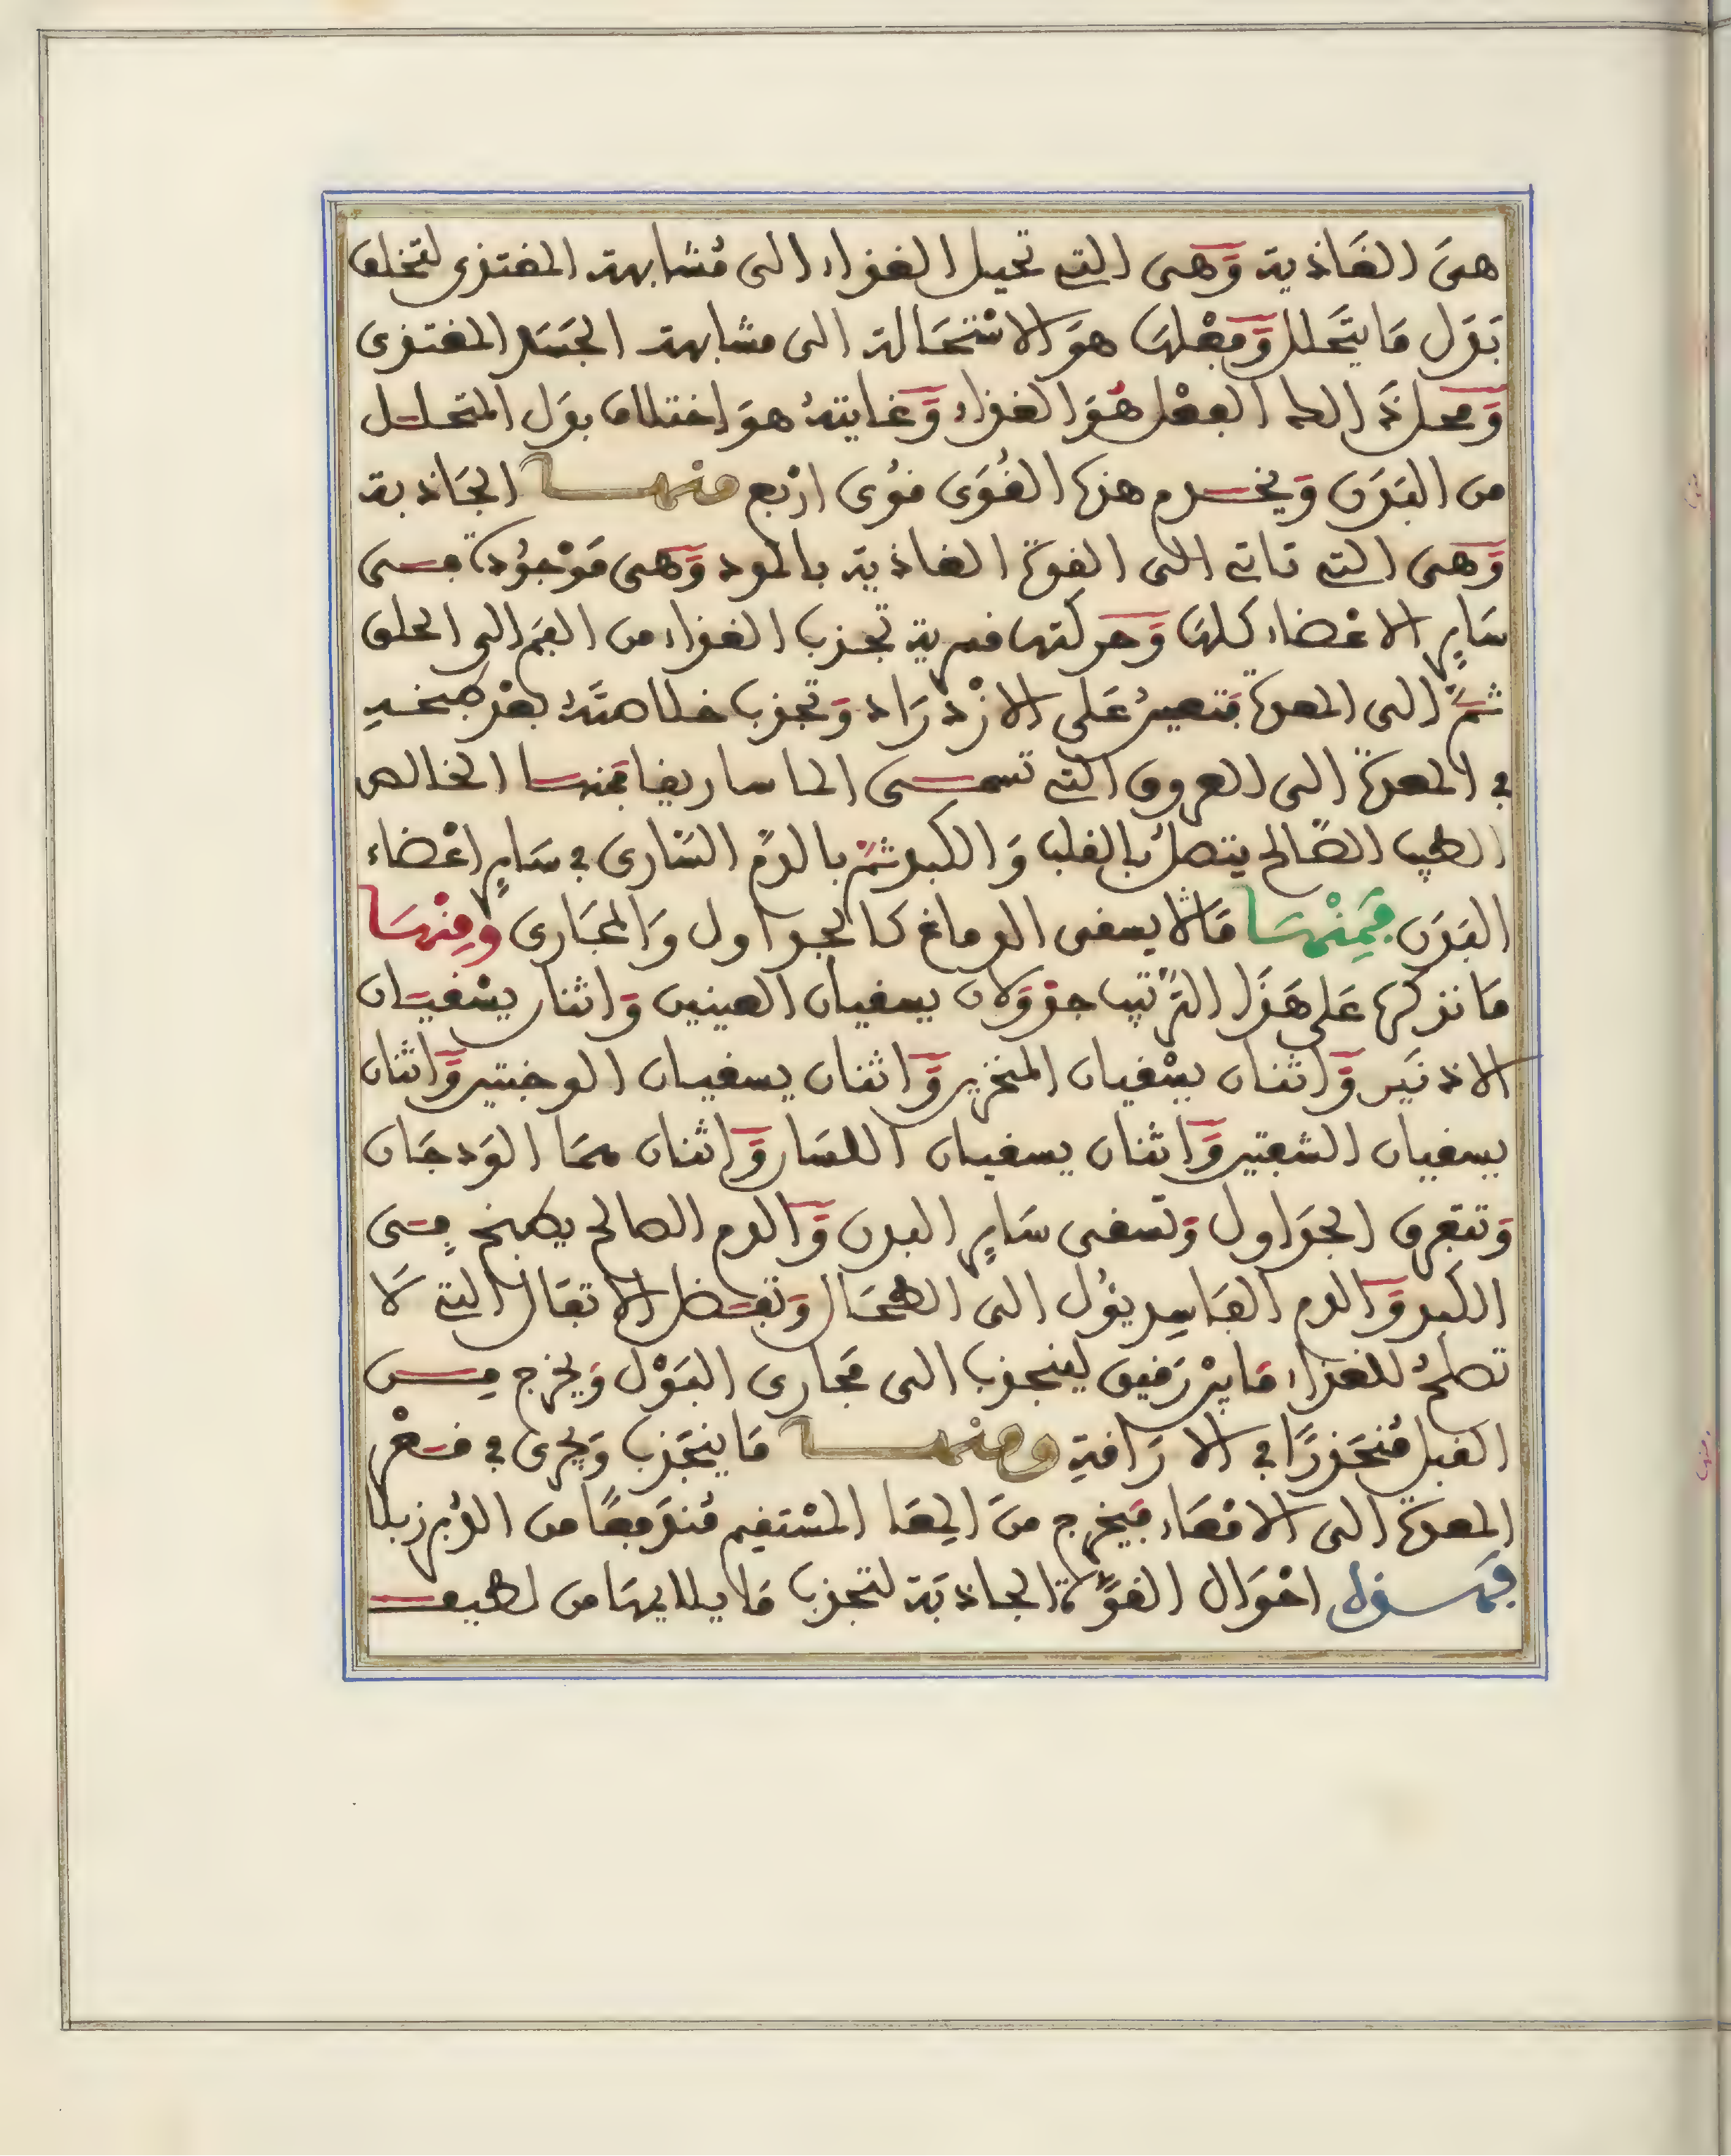 هىَ الغَاذية وَهى التى تحيل الغذاء الى مُشابهة المغتذى لتخلف
بَدَل مَا يتَحلل وَفِعْلهَا هوَ الاسْتحَالة الى مشابهة الجَسَد المغتذى
وَمحل ذَالك الفعْل هُوَ الغذاء وَغايتهُ هوَ اختلاف بدَل المتحلل
من البَدَن وَيخدم هذه القُوَى قوُى ارْبع منْها الجَاذبة
وَهى التى تاتى الى القوة الغاذية بالمود وَهى مَوْجوُدة فى
سَايرِ الاعْضاء كلهَا وَحركتها قسرية تجذب الغذاء من الفمِ الى الحلق
ثمَّ الى المعدة فَتعينُ عَلى الازْدرَاد وَتجذب خلاصتَهُ بعْد طبخه
في المعدة الى العروق التى تسمى الماساريقا فمنها الخالص
الطيب الصَّالح يتصلُ بالقلب وَالكبد ثمَّ بالدمِ السَّارى في سَايرِ اعْضاء
البَدَن فَمِنْهَا مَا لا يسقى الدماغ كالجداول وَالمجَارى ومِنْهَا
مَا نذكرها عَلى هَذَا التَّرْتيب جدْوَلان يسقيان العينين وَاثنان يسْقيَان
الاذنَين وَاثنان يسْقيان المنخرين وَاثنان يسقيان الوجنتين وَاثنان
يسقيان الشفتين وَاثنان يسقيان اللسَان وَاثنان همَا الوَدجَان
وَتتفرق الجدَاول وَتسقى سَايرِ البدن وَالدم الصالح يطبخ فِى
الكبد وَالدم الفَاسِد يئوُل الى الطحَال وَتفضل الاثفَال التى لَا
تصلحُ للغذاء مَا بيْن رَقيق لينجذب الى مجَارى البَوْل وَيخرج مِن
القبل مُنحَدرًا في الارَاقةِ ومنْها مَا ينجَذب وَيجْرى في قعْر
المعدة الى الامْعَاء فيَخرج منَ المِعَا المسْتقيم مُندَفِعًا من الدُبر زبلا
فهذه احْوَال القوَّة الجاذبَة لتجذب مَا يلايمهَا من لطيف